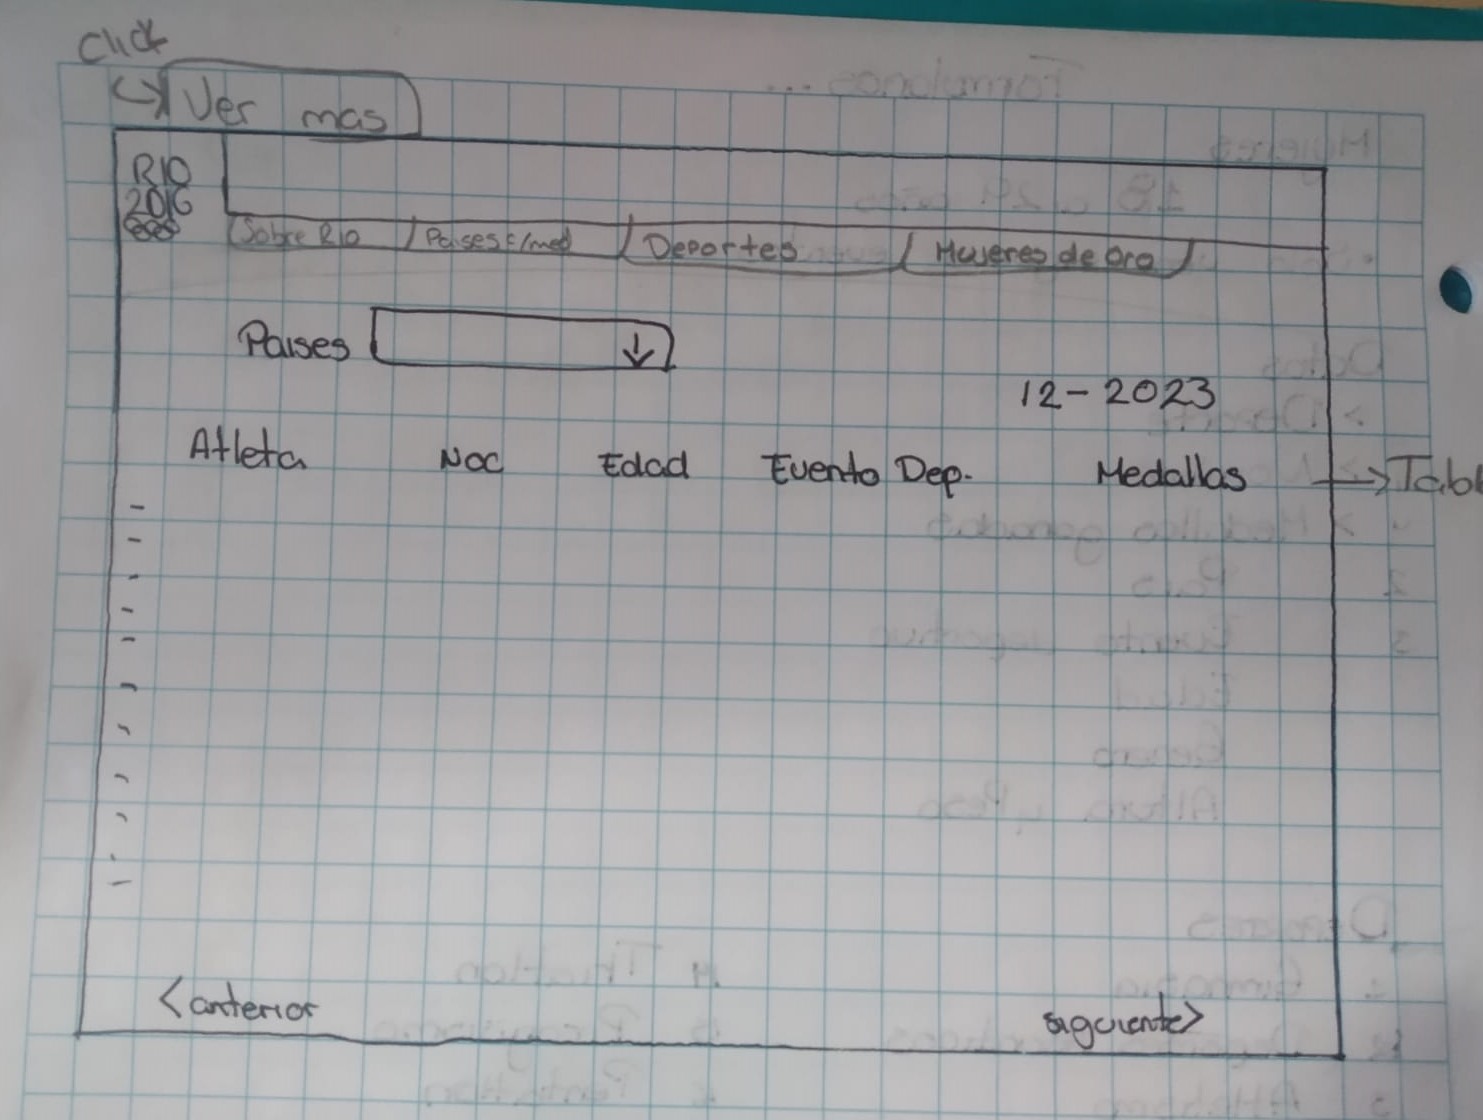 Click
Ver mas
RIO
2016
Sobre Rio
Paises c/med
Deportes
Mujeres de oro
Paises
12-2023
Atleta Noc Edad Evento Dep. Medallas → Tabl
<anterior
siguiente>